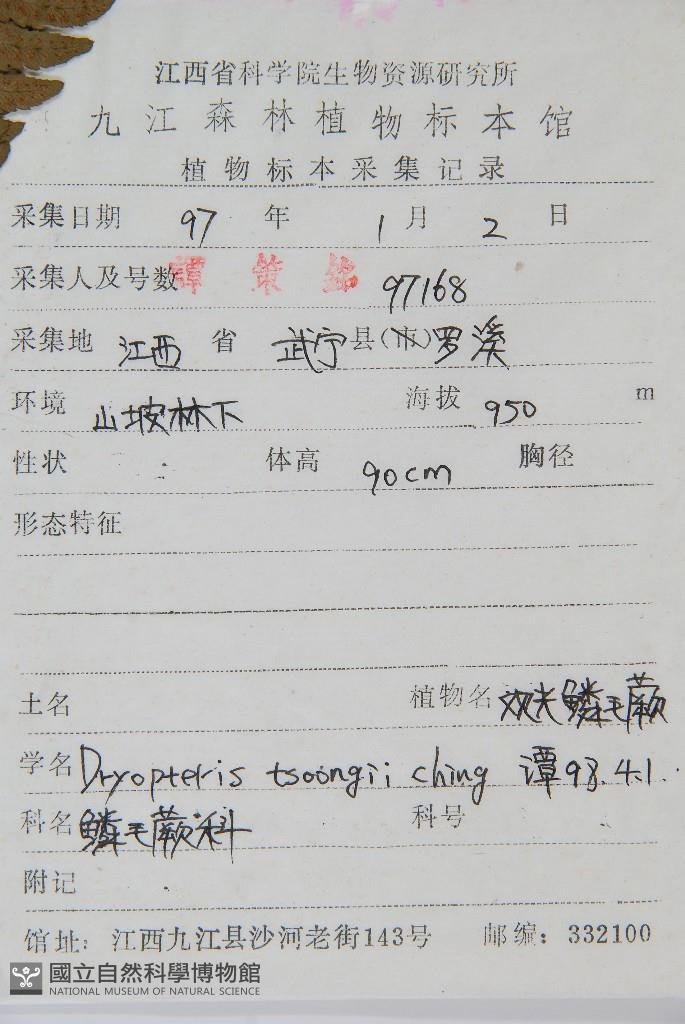 江西省科学院生物资源研究所
九江森林植物标本馆
植物标本采集记录
采集日期 97 年 1 月 2 日
采集人及号数 譚策铭 97168
采集地 江西 省 武宁 县(市) 罗溪
环境 山坡林下 海拔 950 m
性状 体高 90cm 胸径
形态特征
土名 植物名 观光鳞毛蕨
学名 Dryopteris tsoongii ching 谭 93.4.1.
科名 鳞毛蕨科 科号
附记
馆址：江西九江县沙河老街143号 邮编：332100
國立自然科學博物館
NATIONAL MUSEUM OF NATURAL SCIENCE